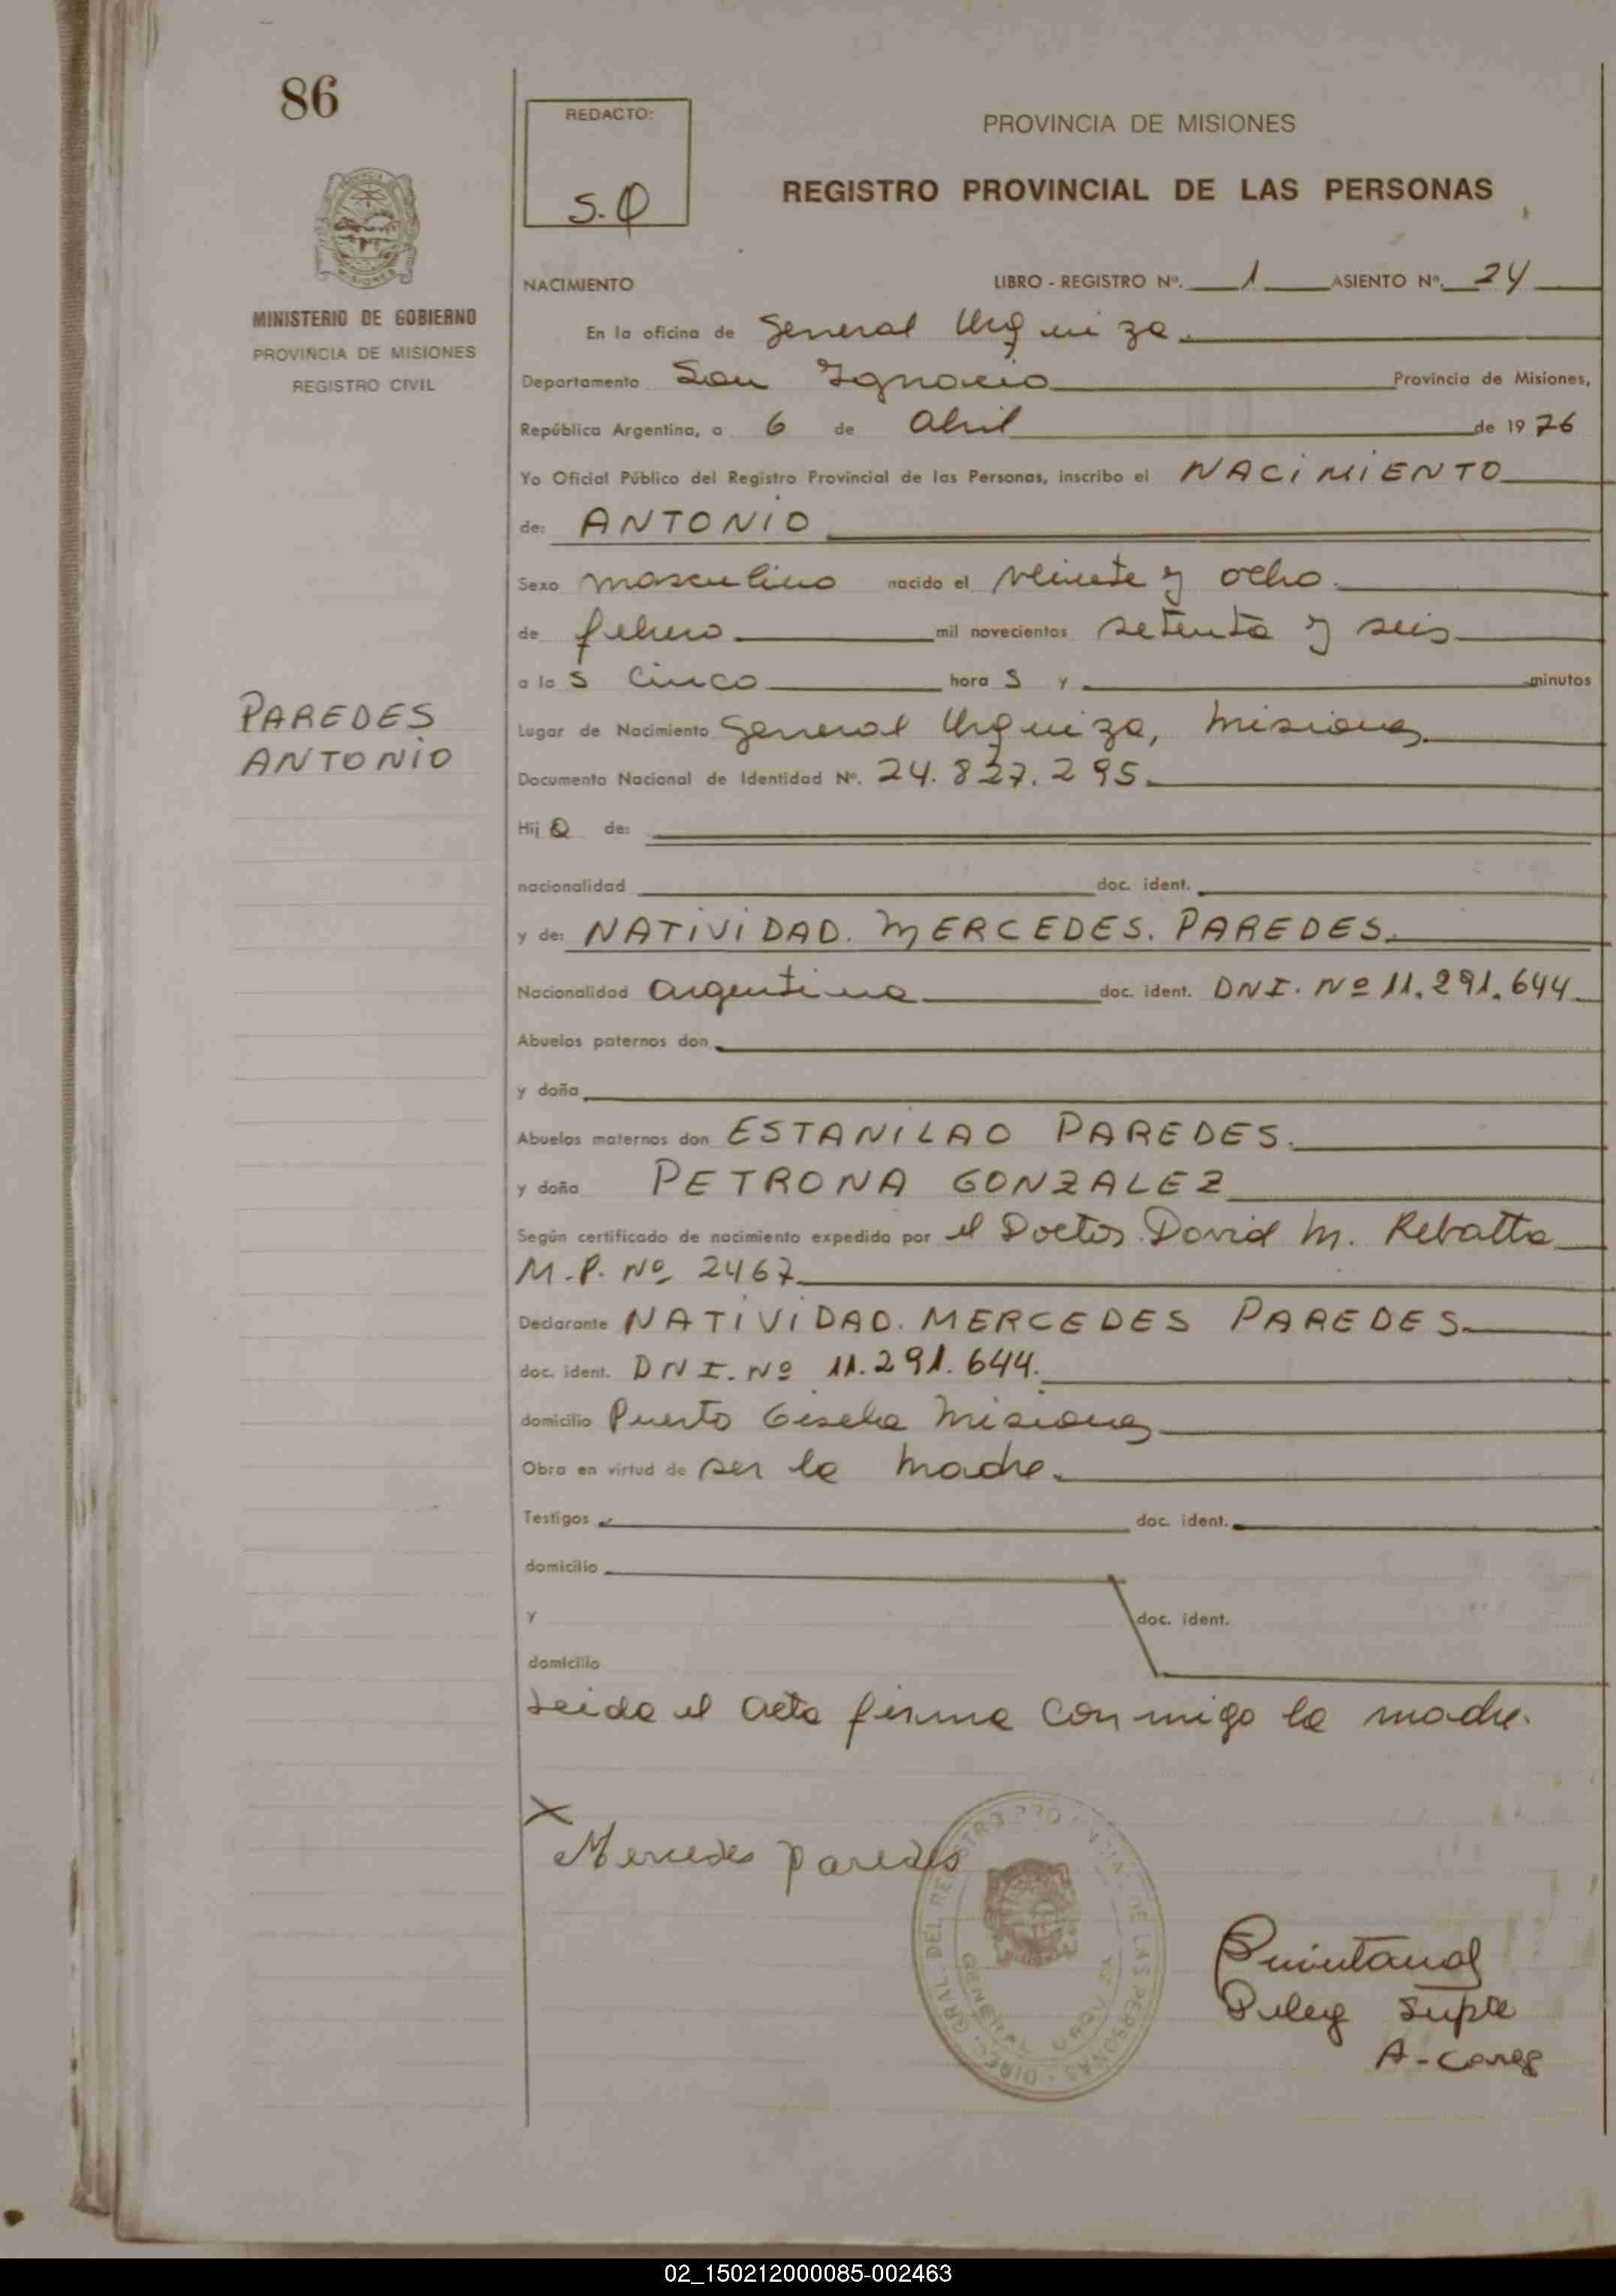 86
REDACTO:
S.Q
PROVINCIA DE MISIONES
REGISTRO PROVINCIAL DE LAS PERSONAS
MINISTERIO DE GOBIERNO
PROVINCIA DE MISIONES
REGISTRO CIVIL
NACIMIENTO LIBRO - REGISTRO Nº. 1 ASIENTO Nº. 24
En la oficina de General Urquiza
Departamento San Ignacio Provincia de Misiones,
República Argentina, a 6 de Abril de 1976
Yo Oficial Público del Registro Provincial de las Personas, inscribo el NACIMIENTO
de: ANTONIO
Sexo masculino nacido el veinte y ocho
de febrero mil novecientos setenta y seis
a las cinco horas y minutos
PAREDES
ANTONIO
Lugar de Nacimiento General Urquiza, Misiones
Documento Nacional de Identidad Nº. 24.827.295
Hijo de:
nacionalidad doc. ident.
y de: NATIVIDAD. MERCEDES. PAREDES.
Nacionalidad argentina doc. ident. DNI. Nº 11.291.644
Abuelos paternos don
y doña
Abuelos maternos don ESTANILAO PAREDES.
y doña PETRONA GONZALEZ
Según certificado de nacimiento expedido por el Doctor David M. Rebatta
M.P. Nº 2467
Declarante NATIVIDAD. MERCEDES PAREDES
doc. ident. DNI. Nº 11.291.644.
domicilio Puerto Gisela Misiones
Obra en virtud de ser la madre.
Testigos doc. ident.
domicilio
y doc. ident.
domicilio
Leida el acta firma conmigo la madre.
X
Mercedes Paredes
DIREC. GRAL. DEL REGISTRO PROVINCIAL DE LAS PERSONAS
GENERAL URQUIZA
Deleg Supte
02_150212000085-002463